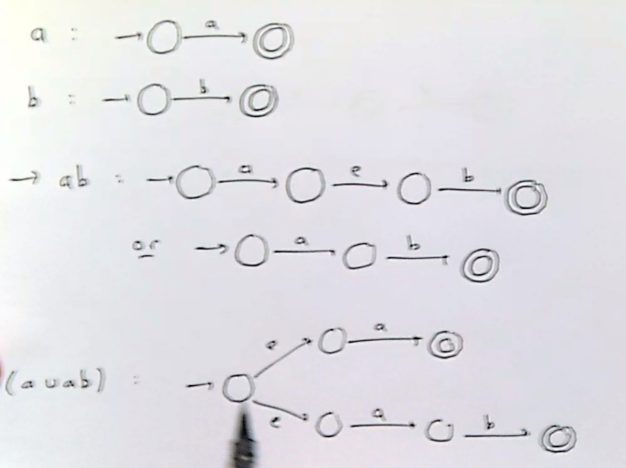 a : a
b : b
→ ab : a e b
or a b
e a
(a ∪ ab) :
e a b